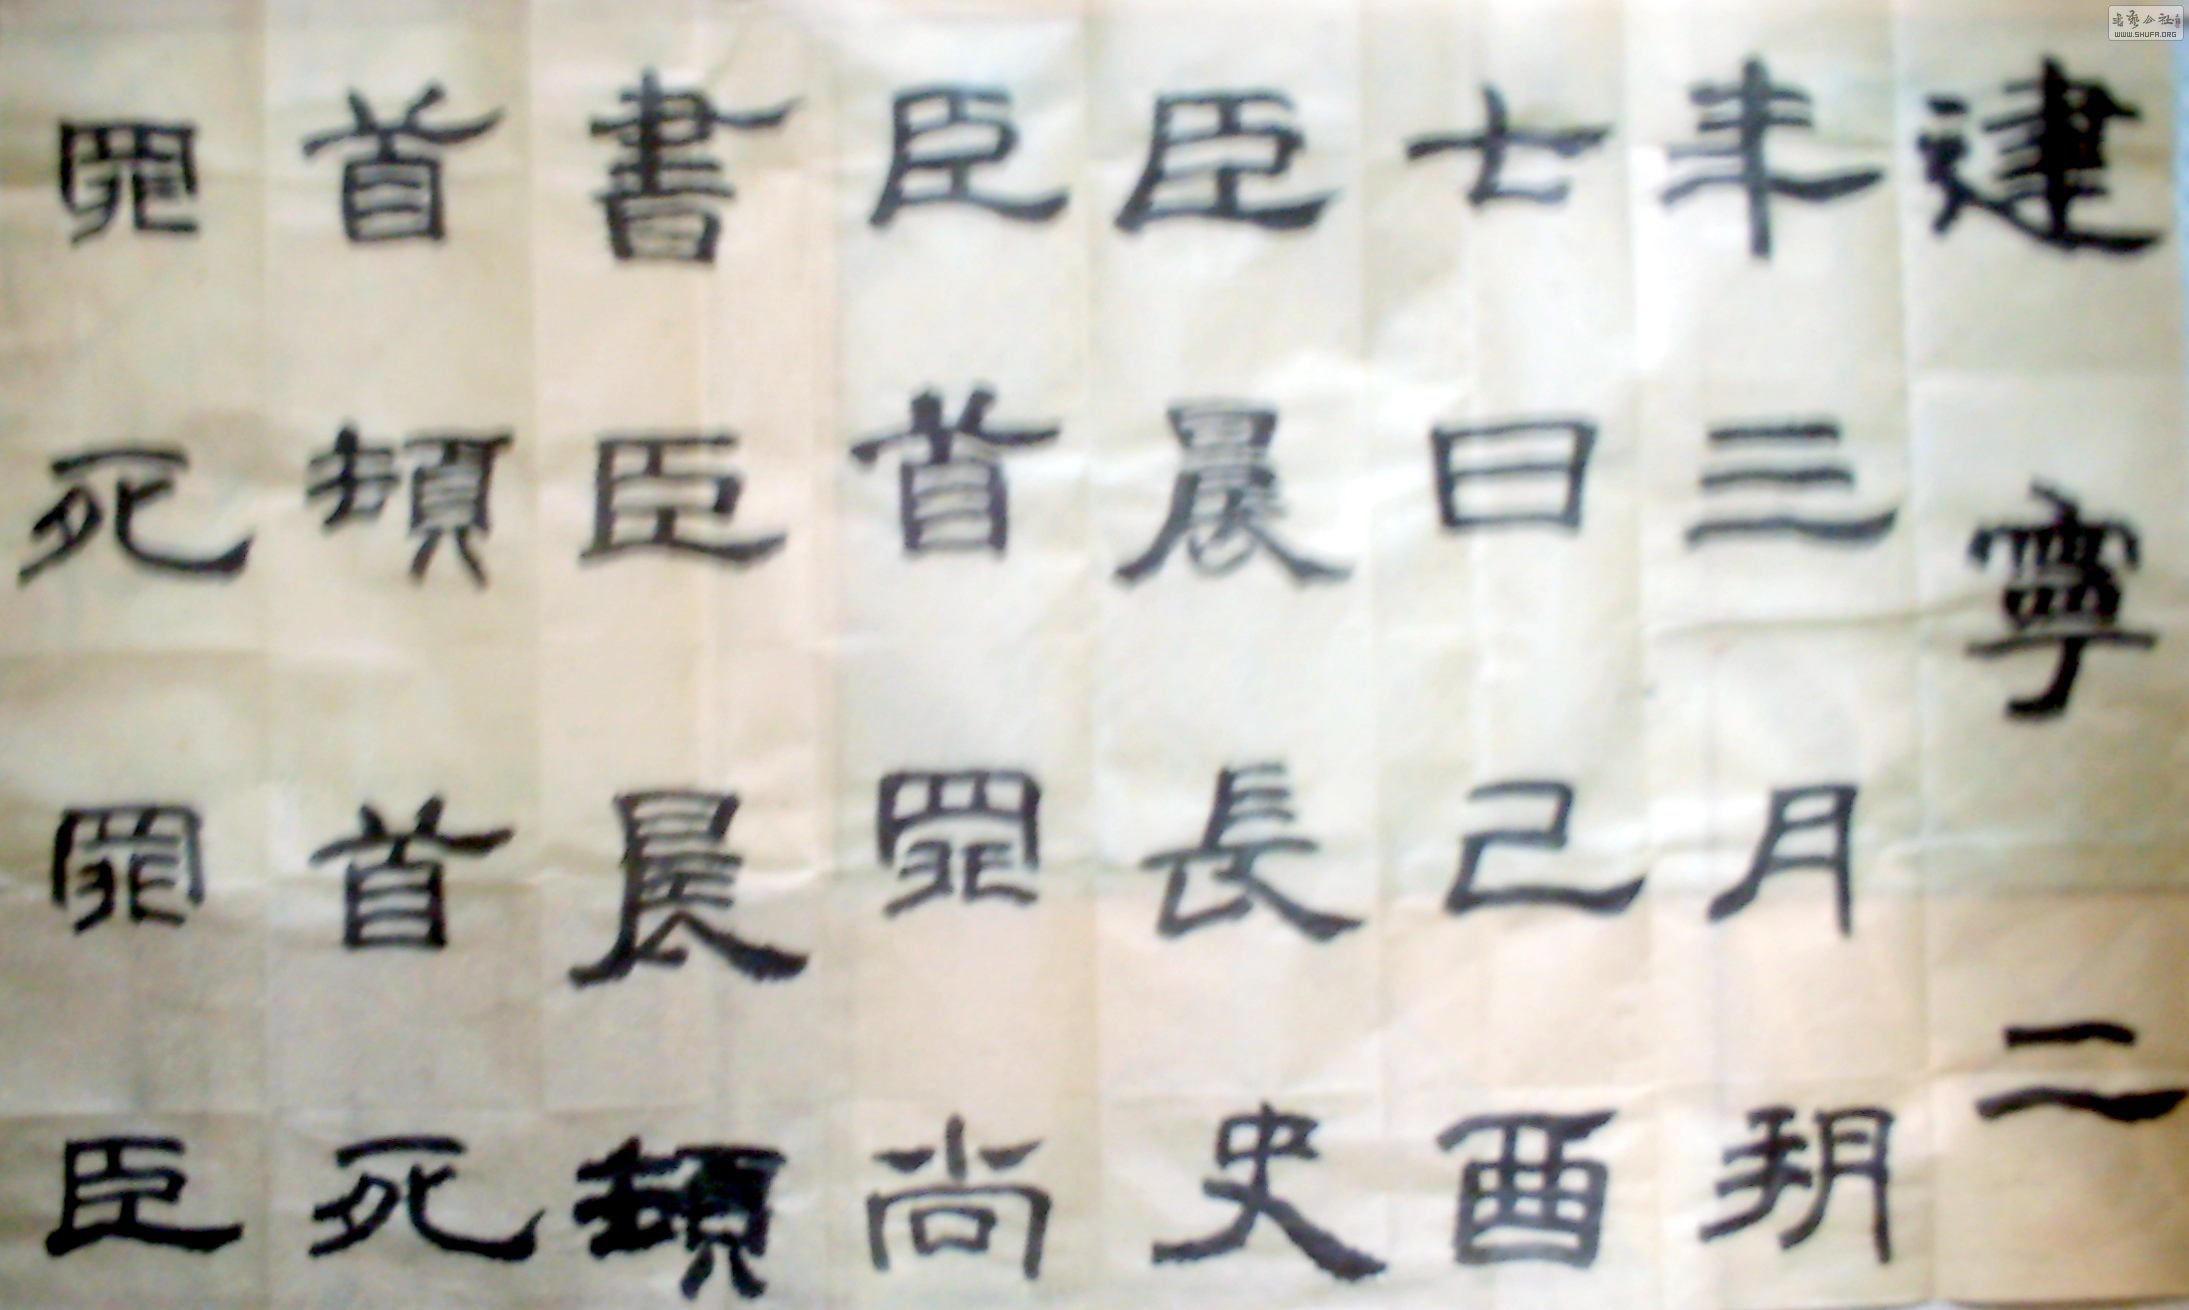 建寧二
年三月朔
七日己酉
臣晨長史
臣首罪尚
書臣晨頓
首頓首死
罪死罪臣
书艺公社
WWW.SHUFA.ORG